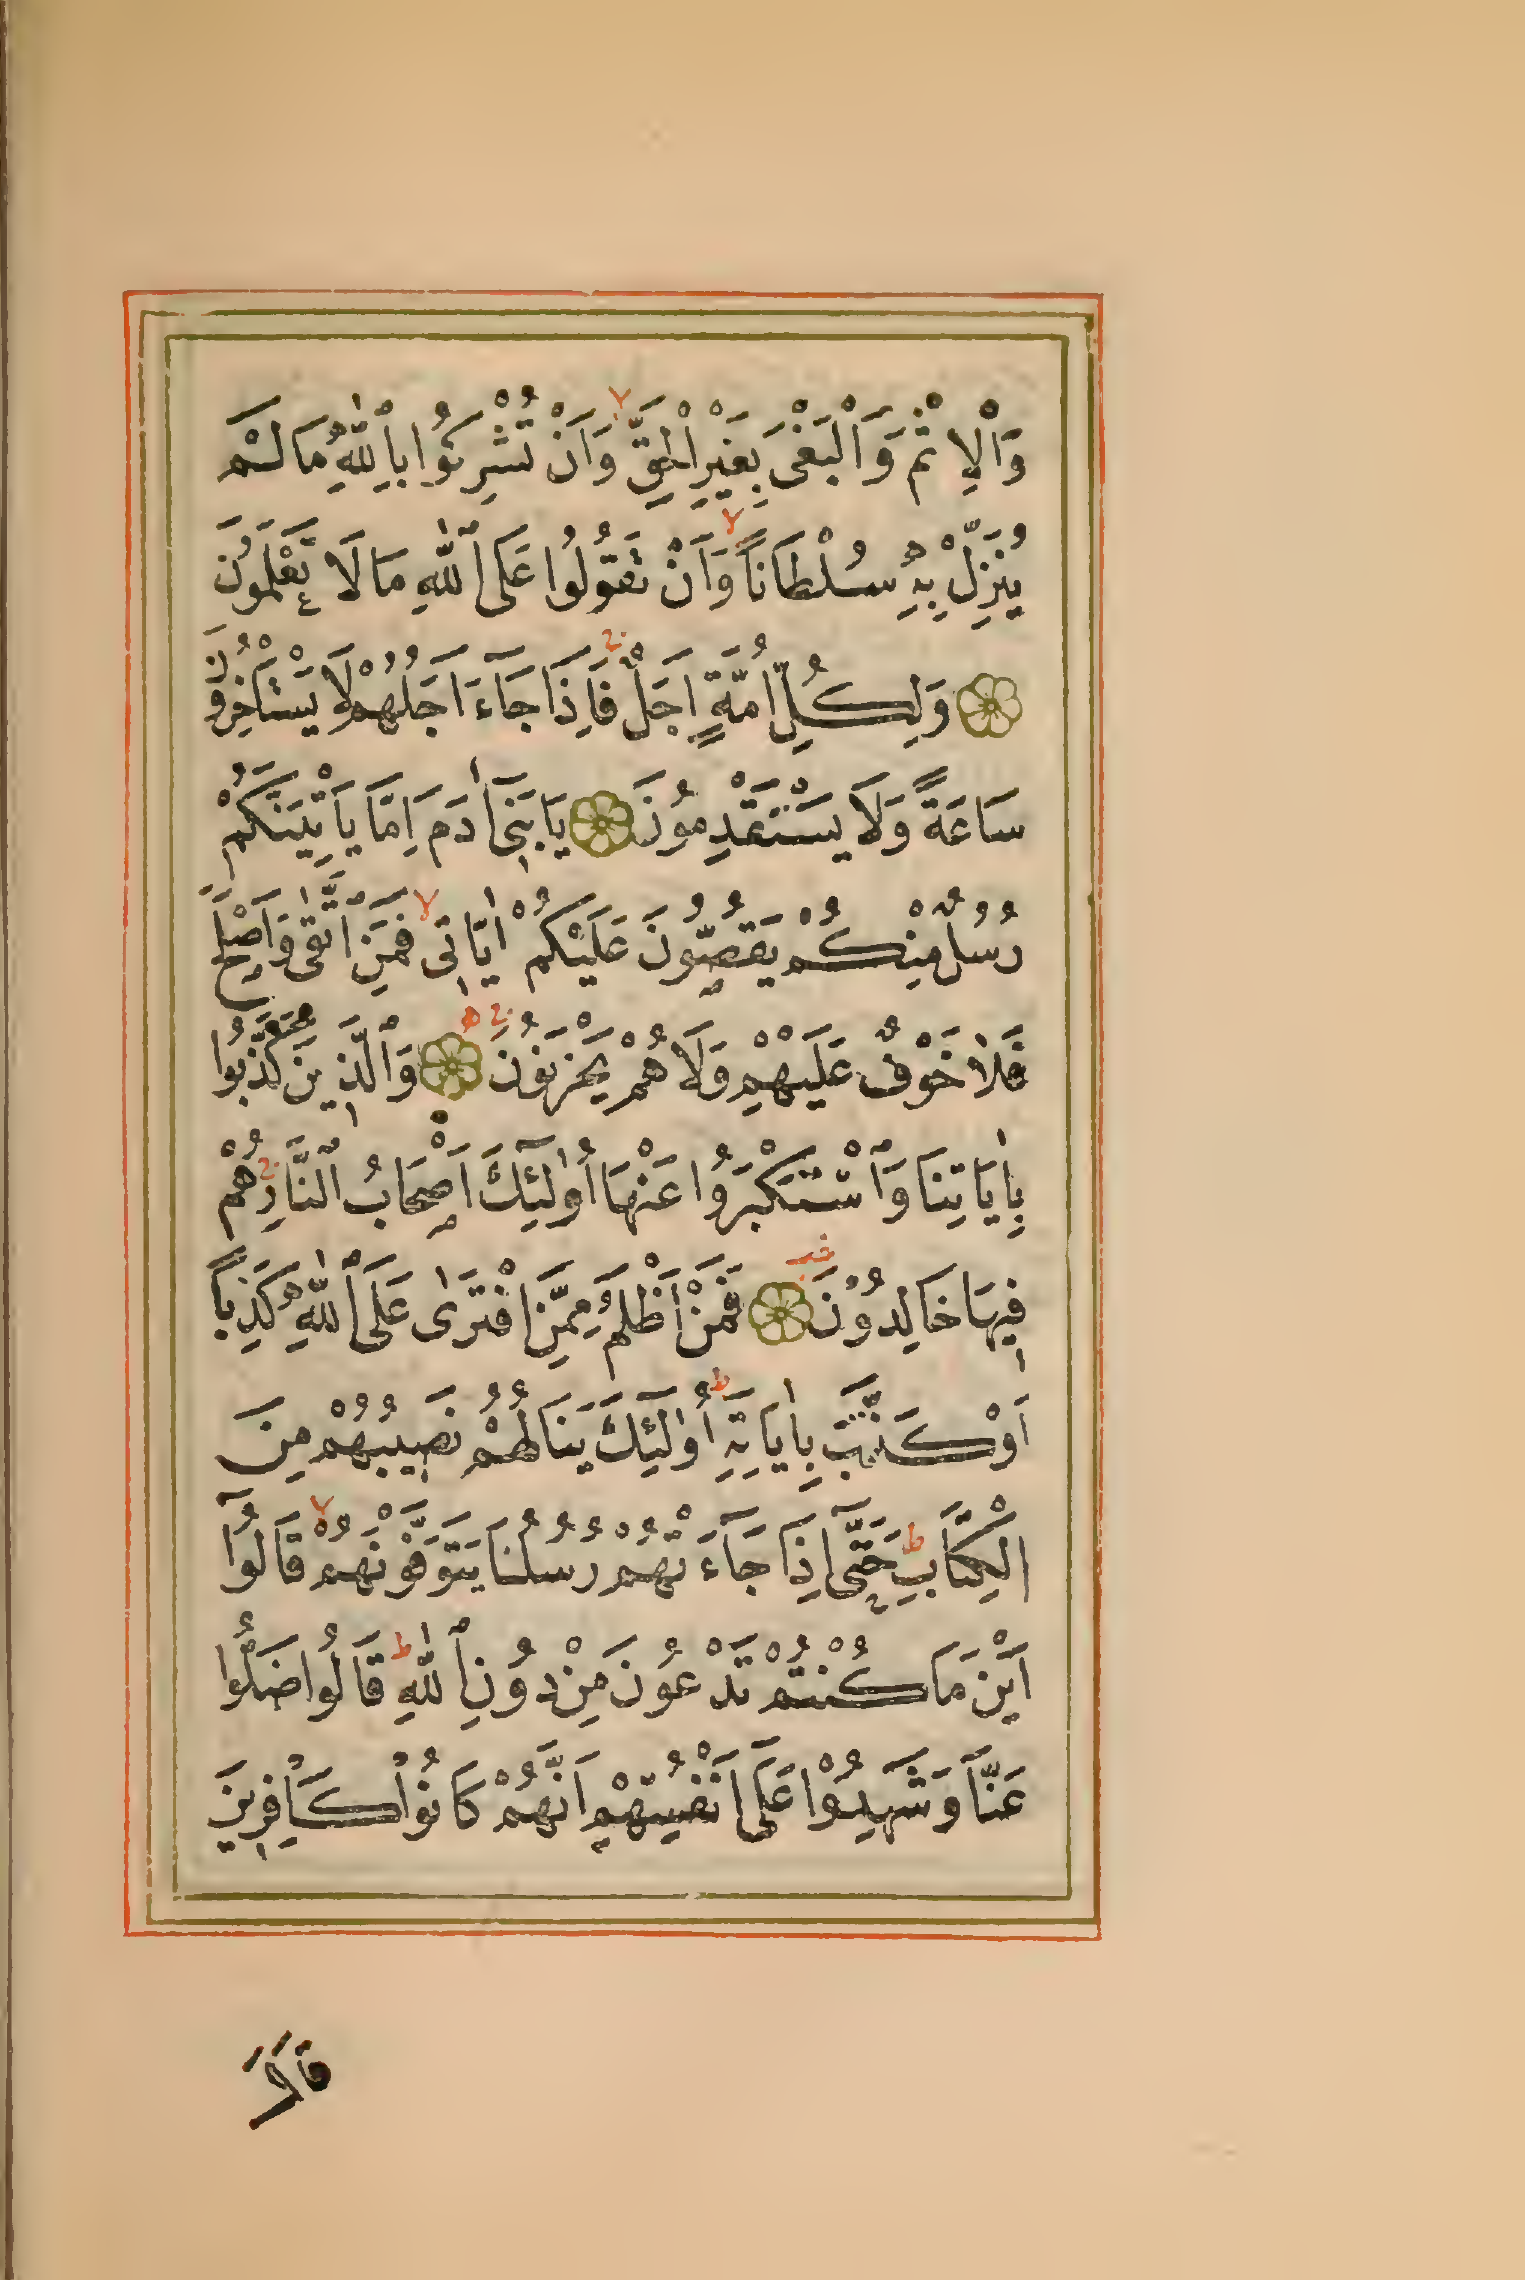 وَالْاِثْمَ وَالْبَغْىَ بِغَيْرِ الْحَقِّ وَاَنْ تُشْرِكُوا بِاللّٰهِ مَا لَمْ
يُنَزِّلْ بِهِ سُلْطَانًا وَاَنْ تَقُولُوا عَلَى اللّٰهِ مَا لَا تَعْلَمُونَ
وَلِكُلِّ اُمَّةٍ اَجَلٌ فَاِذَا جَآءَ اَجَلُهُمْ لَا يَسْتَاْخِرُونَ
سَاعَةً وَلَا يَسْتَقْدِمُونَ يَا بَنِىٓ اٰدَمَ اِمَّا يَاْتِيَنَّكُمْ
رُسُلٌ مِنْكُمْ يَقُصُّونَ عَلَيْكُمْ اٰيَاتِى فَمَنِ اتَّقٰى وَاَصْلَحَ
فَلَا خَوْفٌ عَلَيْهِمْ وَلَا هُمْ يَحْزَنُونَ وَالَّذِينَ كَذَّبُوا
بِاٰيَاتِنَا وَاسْتَكْبَرُوا عَنْهَا اُولٰٓئِكَ اَصْحَابُ النَّارِ هُمْ
فِيهَا خَالِدُونَ فَمَنْ اَظْلَمُ مِمَّنِ افْتَرٰى عَلَى اللّٰهِ كَذِبًا
اَوْ كَذَّبَ بِاٰيَاتِهِ اُولٰٓئِكَ يَنَالُهُمْ نَصِيبُهُمْ مِنَ
الْكِتَابِ حَتّٰٓى اِذَا جَآءَتْهُمْ رُسُلُنَا يَتَوَفَّوْنَهُمْ قَالُوٓا
اَيْنَ مَا كُنْتُمْ تَدْعُونَ مِنْ دُونِ اللّٰهِ قَالُوا ضَلُّوا
عَنَّا وَشَهِدُوْا عَلٰٓى اَنْفُسِهِمْ اَنَّهُمْ كَانُوْا كَافِرِينَ